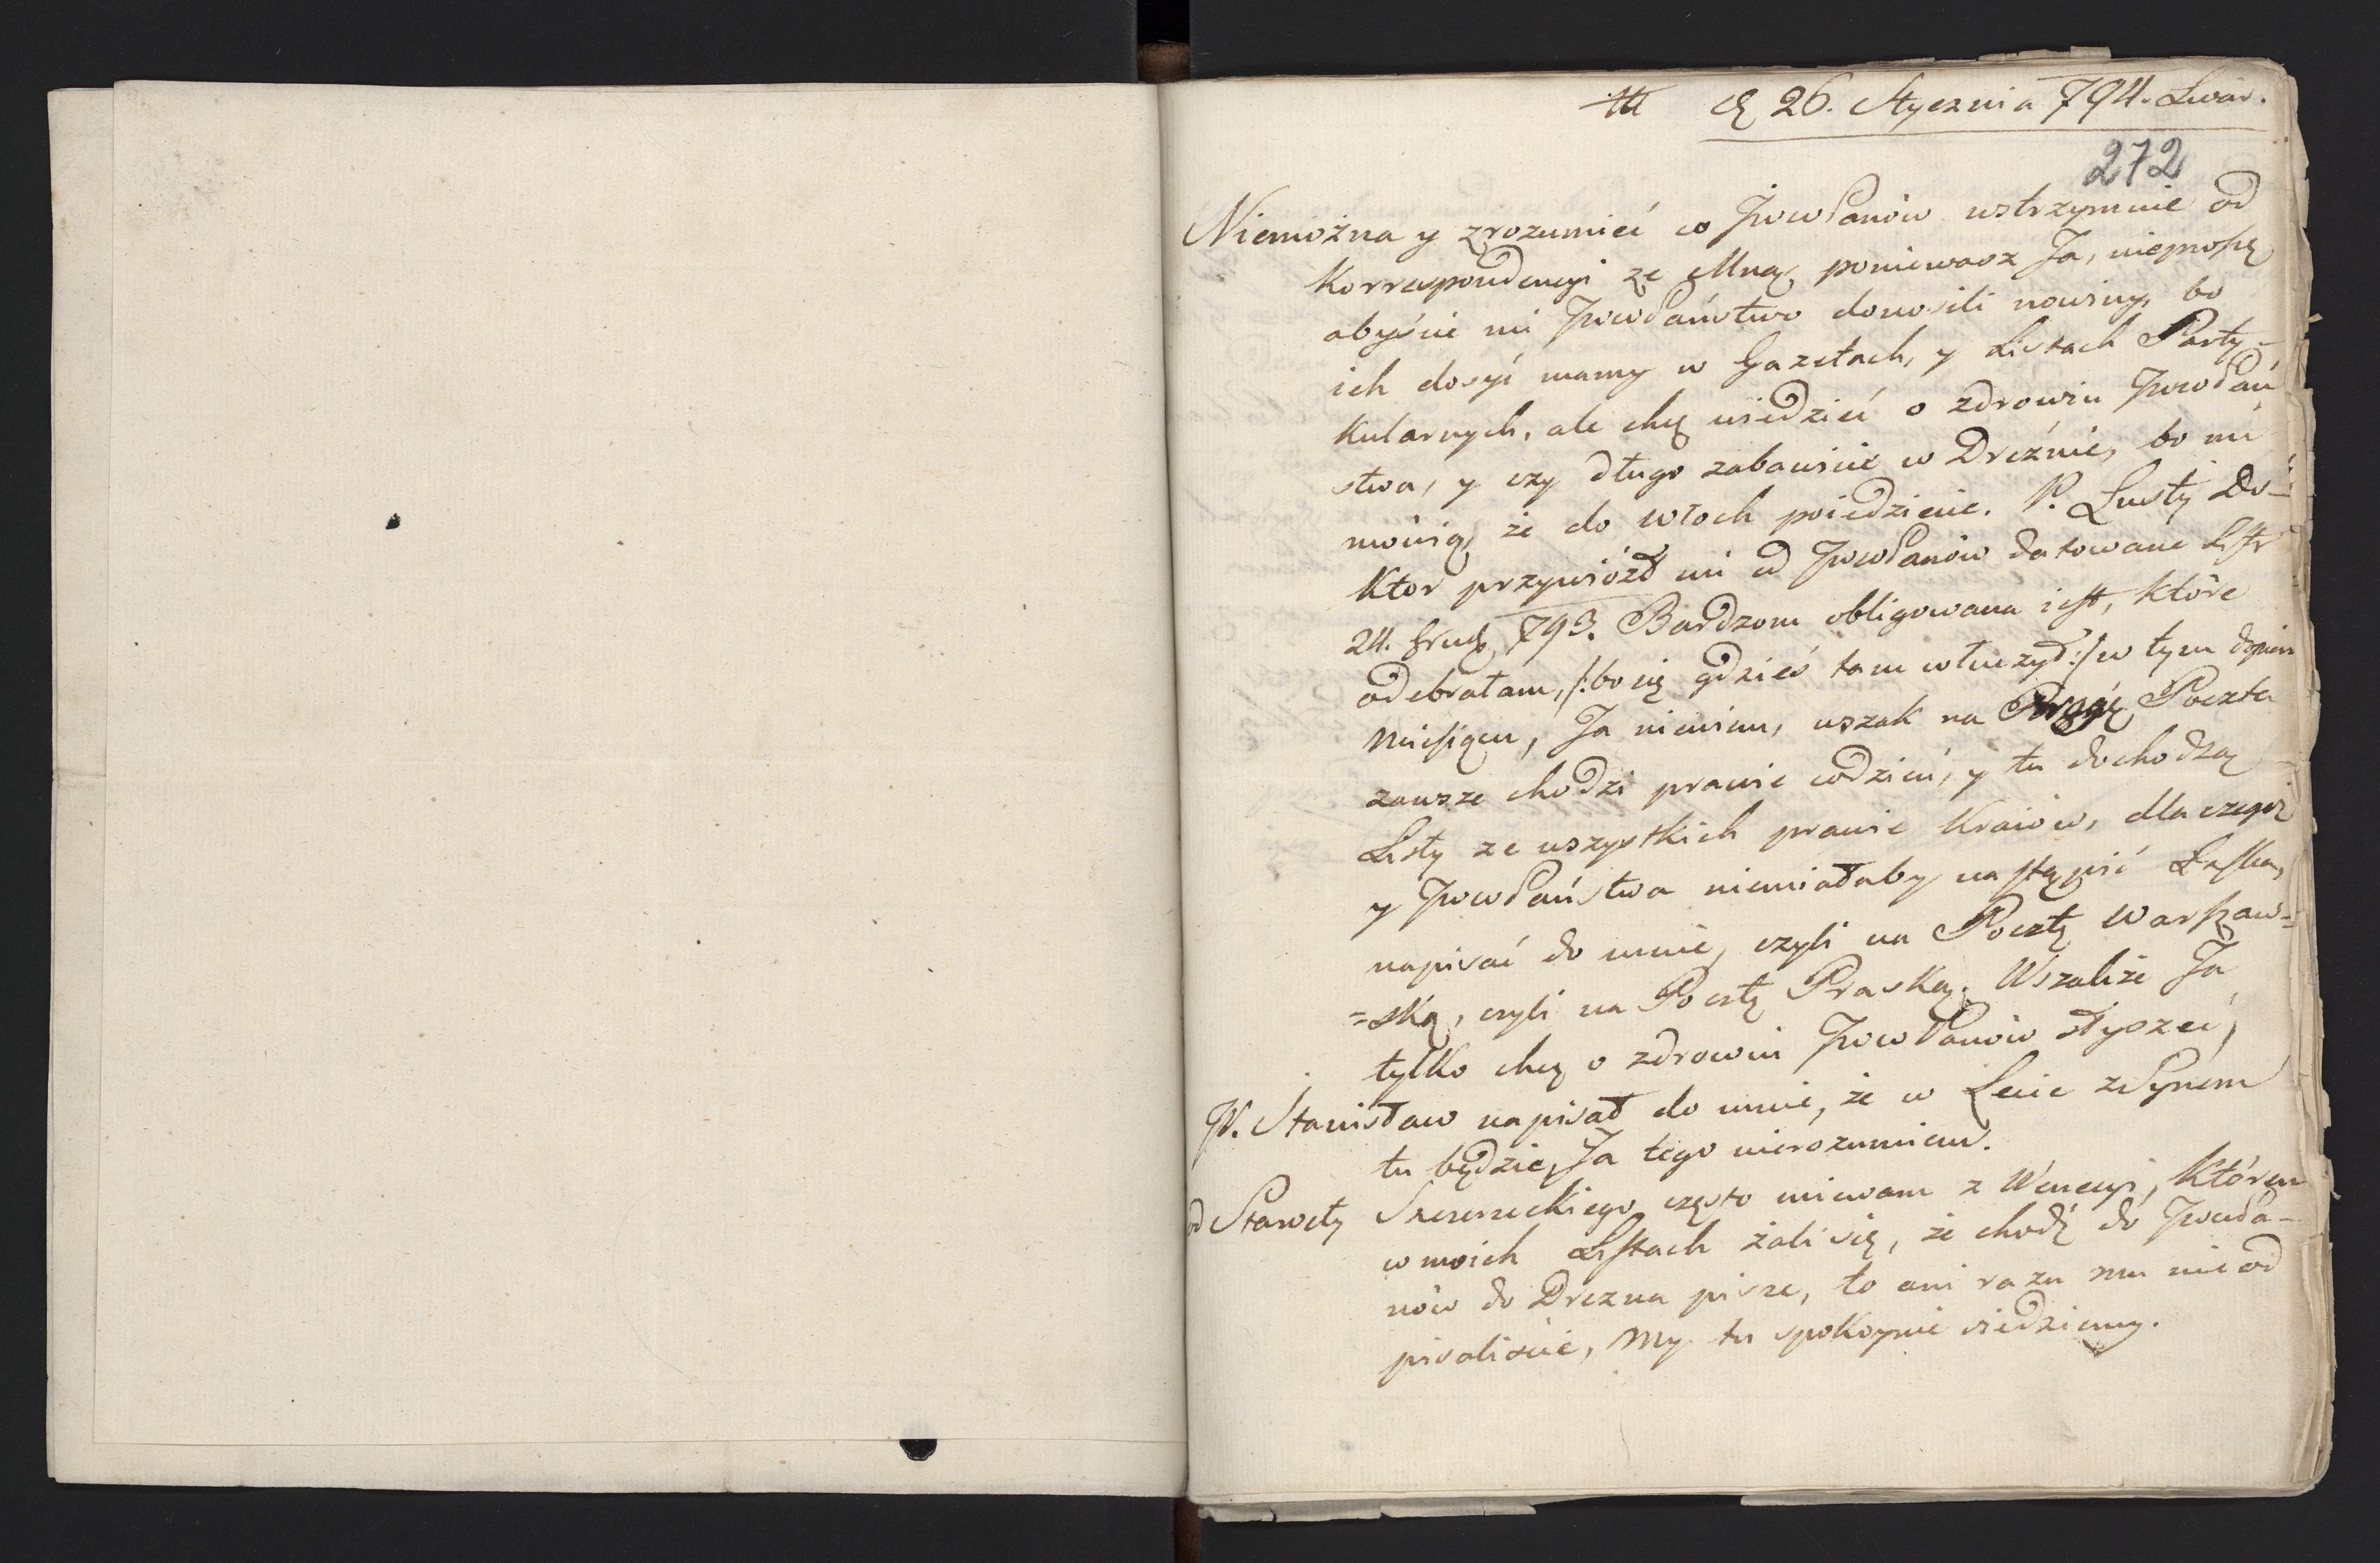 26. Stycznia 794. Lwów.
272
Niemożna y zrozumieć co JwwPanów wstrzymuie od
Korrespondencyi ze Mną, poniewasz Ja, nieproszę
abyście mi JwwPaństwo donosili nowiny, bo
ich dosyć mamy w Gazetach, y Listach Party-
kularnych, ale chcę wiedzieć o zdrowiu JwwPań
stwa, y czy długo zabawicie w Dreźnie, bo mi
mówią, że do Włoch poiedziecie. P. Lusty Do-
ktor przywiózł mi od JwwPanów datowane Listr
24. Grud 793. Bardzom obligowana iest, które
odebrałam, /:bo się gdzieś tam włuczył:/ w tym dopiero
Miesiącu, Ja niewiem, wszak na Pragę Poczta
zawsze chodzi prawie codzień, y tu dochodzą
Listy ze wszystkich prawie Kraiów, dla czegoż
y JwwPaństwa niemiałaby nastąpić Łaska,
napisać do mnie, czyli na Pocztę Warszaw=
=ską, czyli na Pocztę Praską. Wszakże Ja
tylko chcę o zdrowiu JwwPanów słyszeć,
JP. Stanisław napisał do mnie, że w Lecie z Synem
tu będzie, Ja tego nierozumiem.
od Starosty często miewam z Wenecyi, Któren
w moich Listach żali się, że chodź do JwwPa-
nów do Drezna pisze, to ani razu mu nie od
pisaliście, My tu spokoynie siedziemy.